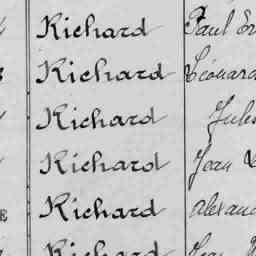 Richard Paul
Richard Léonard
Richard Jules
Richard Jean
Richard
Richard Jean